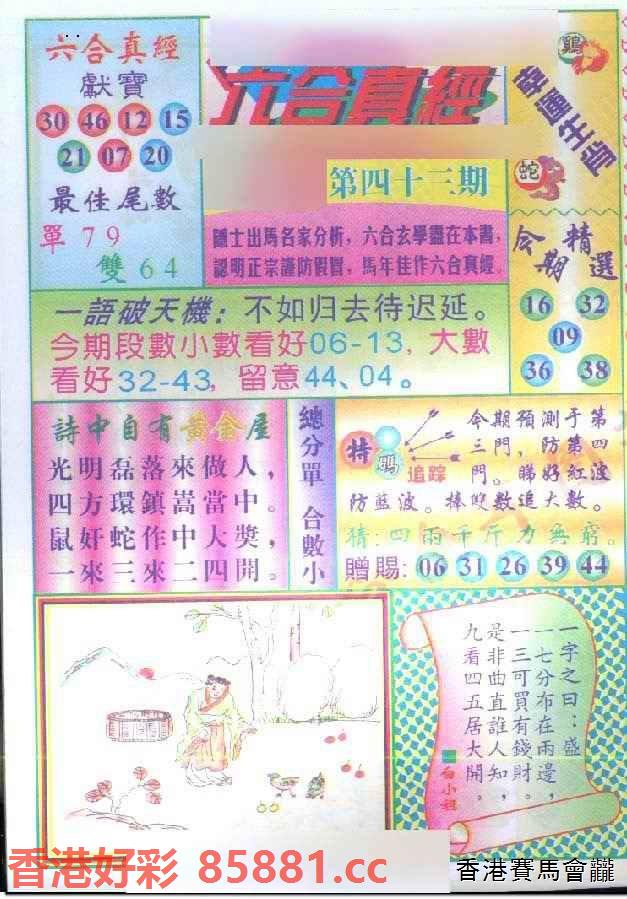 六合真經
獻寶
30 46 12 15
21 07 20
最佳尾數
單 7 9
雙 6 4
六合真經
第四十三期
隱士出馬名家分析，六合玄學盡在本書，
認明正宗謹防假冒，馬年佳作六合真經
鷄
蛇
今期
精選
16 32
09
36 38
一語破天機：不如归去待迟延。
今期段數小數看好06-13，大數
看好32-43，留意44、04。
詩中自有黃金屋
光明磊落來做人，
四方環鎮嵩當中。
鼠奸蛇作中大獎，
一來三來二四開。
總分單 合數小
特碼
追踪
今期預測于第
三門，防第四
門。睇好紅波
防藍波。捧雙數追大數。
猜：四兩千斤力無窮。
贈賜：06 31 26 39 44
一字之曰：盛
一七分布在兩邊，
一三可買有錢財。
是非曲直誰人知，
九看四五居大開。
白小姐
香港好彩 85881.cc
香港賽馬會